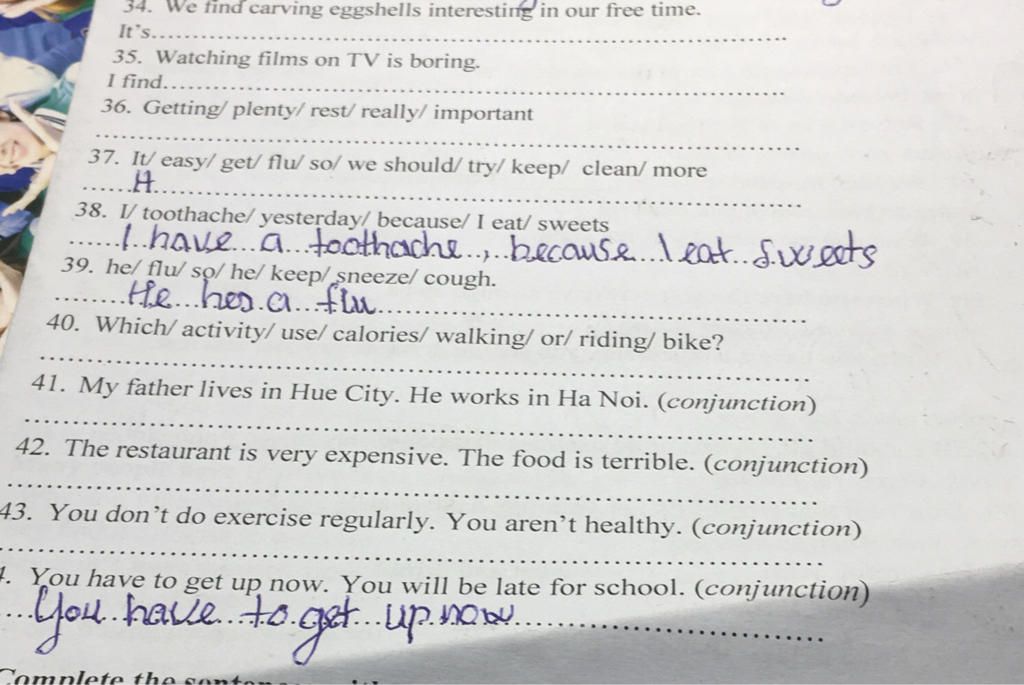 34. We find carving eggshells interesting in our free time.
It's........................................................................
35. Watching films on TV is boring.
I find........................................................................
36. Getting/ plenty/ rest/ really/ important
........................................................................
37. It/ easy/ get/ flu/ so/ we should/ try/ keep/ clean/ more
......It........................................................................
38. I/ toothache/ yesterday/ because/ I eat/ sweets
......I have a toothache, because I eat sweets
39. he/ flu/ so/ he/ keep/ sneeze/ cough.
........He has a flu........................................................
40. Which/ activity/ use/ calories/ walking/ or/ riding/ bike?
........................................................................
41. My father lives in Hue City. He works in Ha Noi. (conjunction)
........................................................................
42. The restaurant is very expensive. The food is terrible. (conjunction)
........................................................................
43. You don't do exercise regularly. You aren't healthy. (conjunction)
........................................................................
4. You have to get up now. You will be late for school. (conjunction)
...You have to get up now........................................................
Complete the